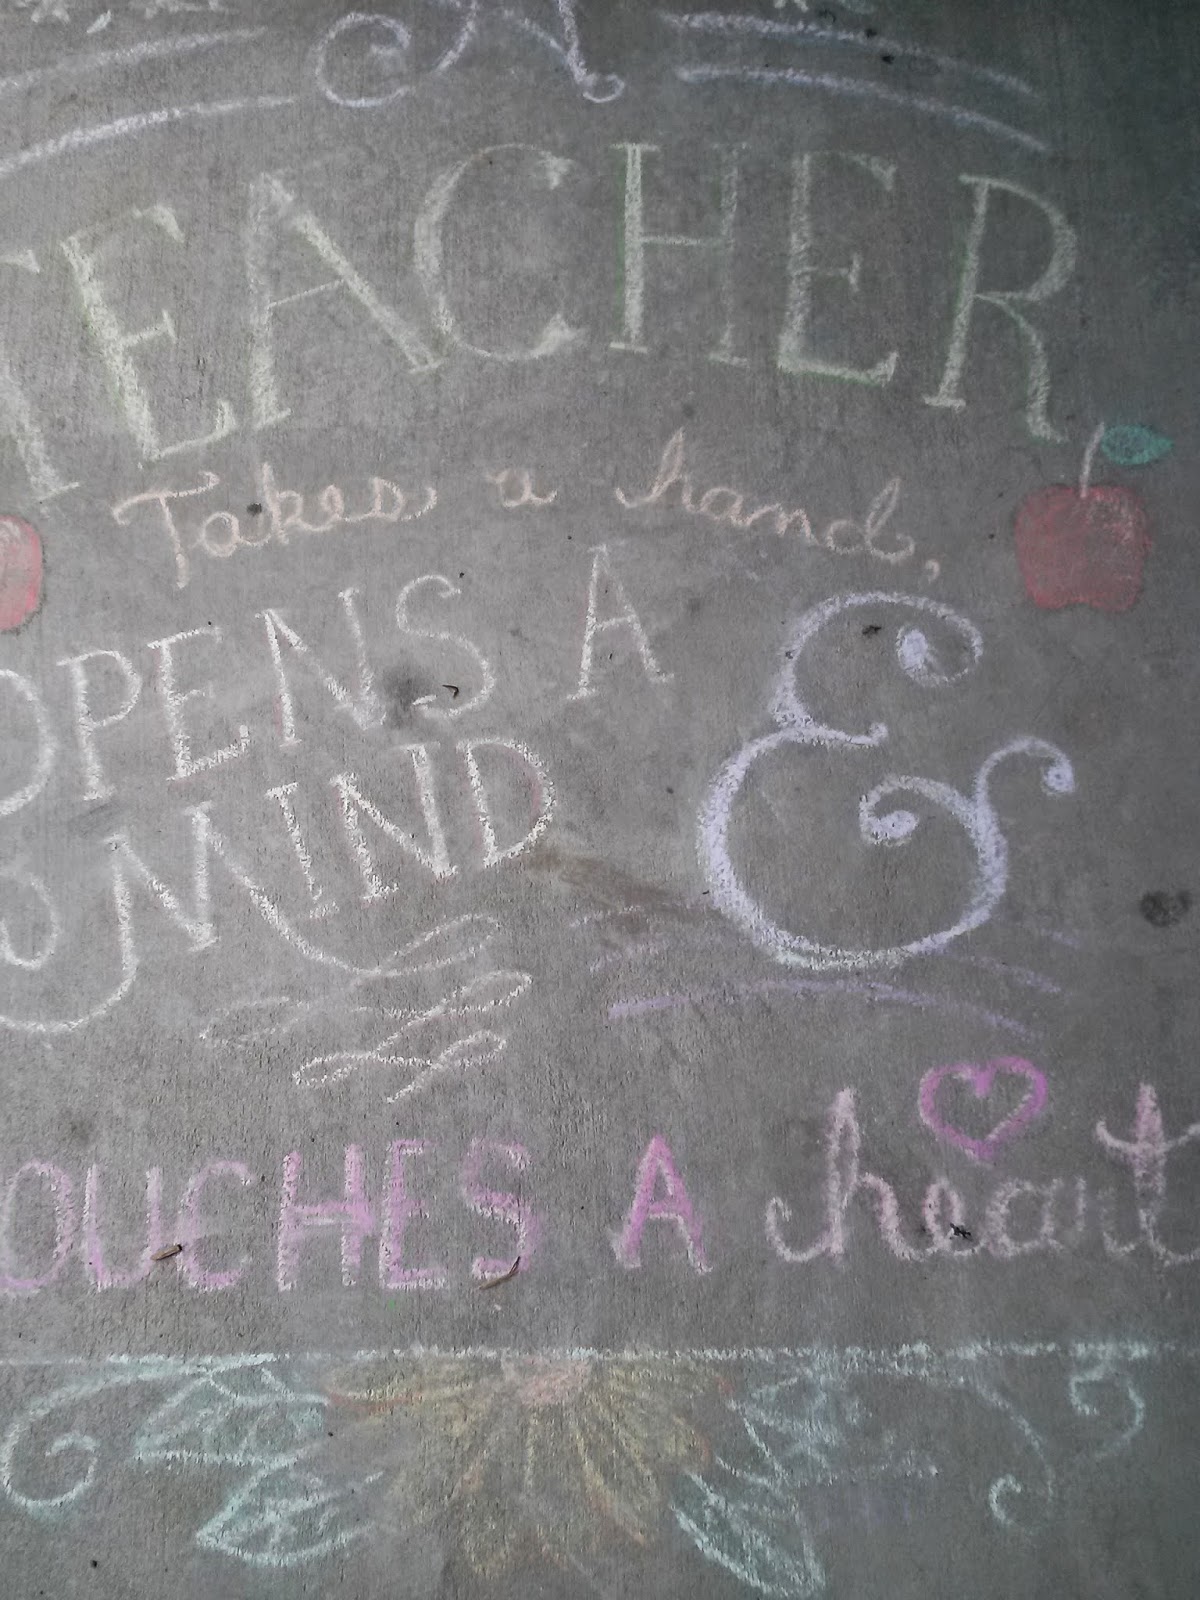 A
TEACHER
Takes a hand,
OPENS A
MIND &
TOUCHES A heart